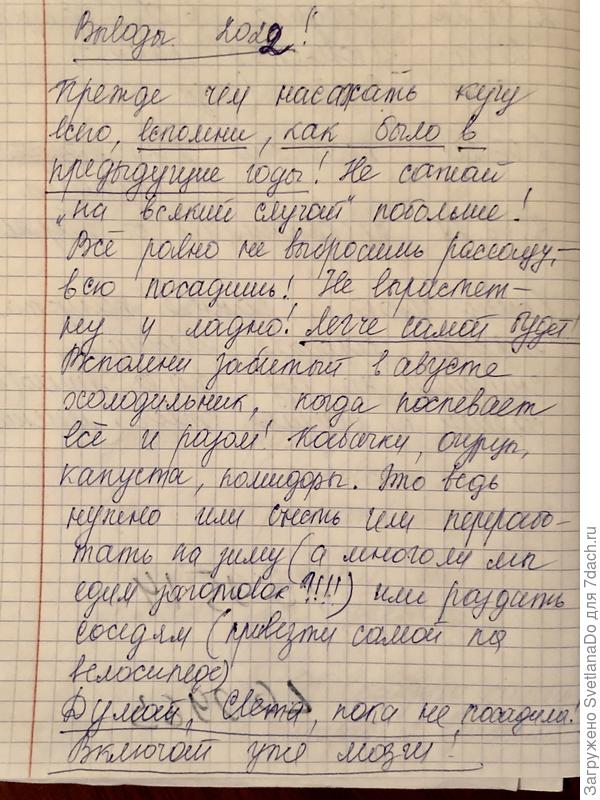 Выводы 2022!
Прежде чем насажать кучу
всего, вспомни, как было в
предыдущие годы! Не сажай
„на всякий случай" побольше!
Всё равно не выбросишь рассаду, –
всю посадишь! Не вырастет –
ну и ладно! Легче самой будет!
Вспомни забитый в августе
холодильник, когда поспевает
всё и разом! Кабачки, огурцы,
капуста, помидоры. Это ведь
нужно или съесть или перерабо-
тать на зиму (а много ли мы
едим заготовок?!!!!) или раздать
соседям (привезти самой на
велосипеде)
Думай, Света, пока не посадила!
Включай уже мозги!
Загружено SvetlanaDo для 7dach.ru